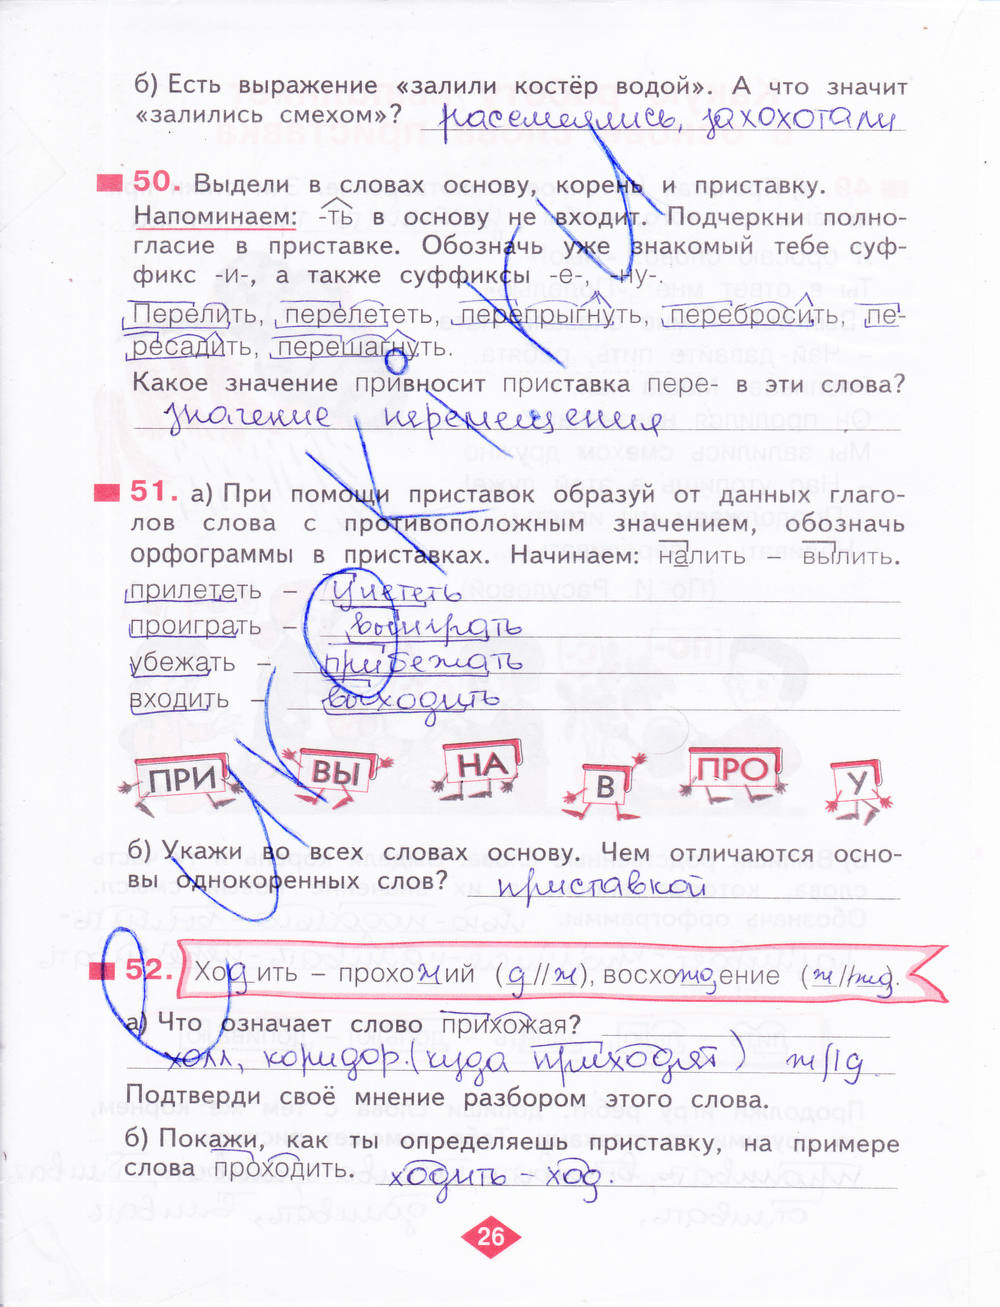 б) Есть выражение «залили костёр водой». А что значит
«залились смехом»? рассмеялись, захохотали
50. Выдели в словах основу, корень и приставку.
Напоминаем: -ть в основу не входит. Подчеркни полно-
гласие в приставке. Обозначь уже знакомый тебе суф-
фикс -и-, а также суффиксы -е- и -ну-.
Перелить, перелететь, перепрыгнуть, перебросить, пе-
ресадить, перешагнуть.
Какое значение привносит приставка пере- в эти слова?
значение перемещения
51. а) При помощи приставок образуй от данных глаго-
лов слова с противоположным значением, обозначь
орфограммы в приставках. Начинаем: налить – вылить.
прилететь – улететь
проиграть – выиграть
убежать – прибежать
входить – выходить
ПРИ ВЫ НА В ПРО У
б) Укажи во всех словах основу. Чем отличаются осно-
вы однокоренных слов? приставкой
52. Ходить – прохожий (д//ж), восхождение (ж//жд.
а) Что означает слово прихожая?
холл, коридор.(куда приходят) ж//д
Подтверди своё мнение разбором этого слова.
б) Покажи, как ты определяешь приставку, на примере
слова проходить. ходить – ход.
26